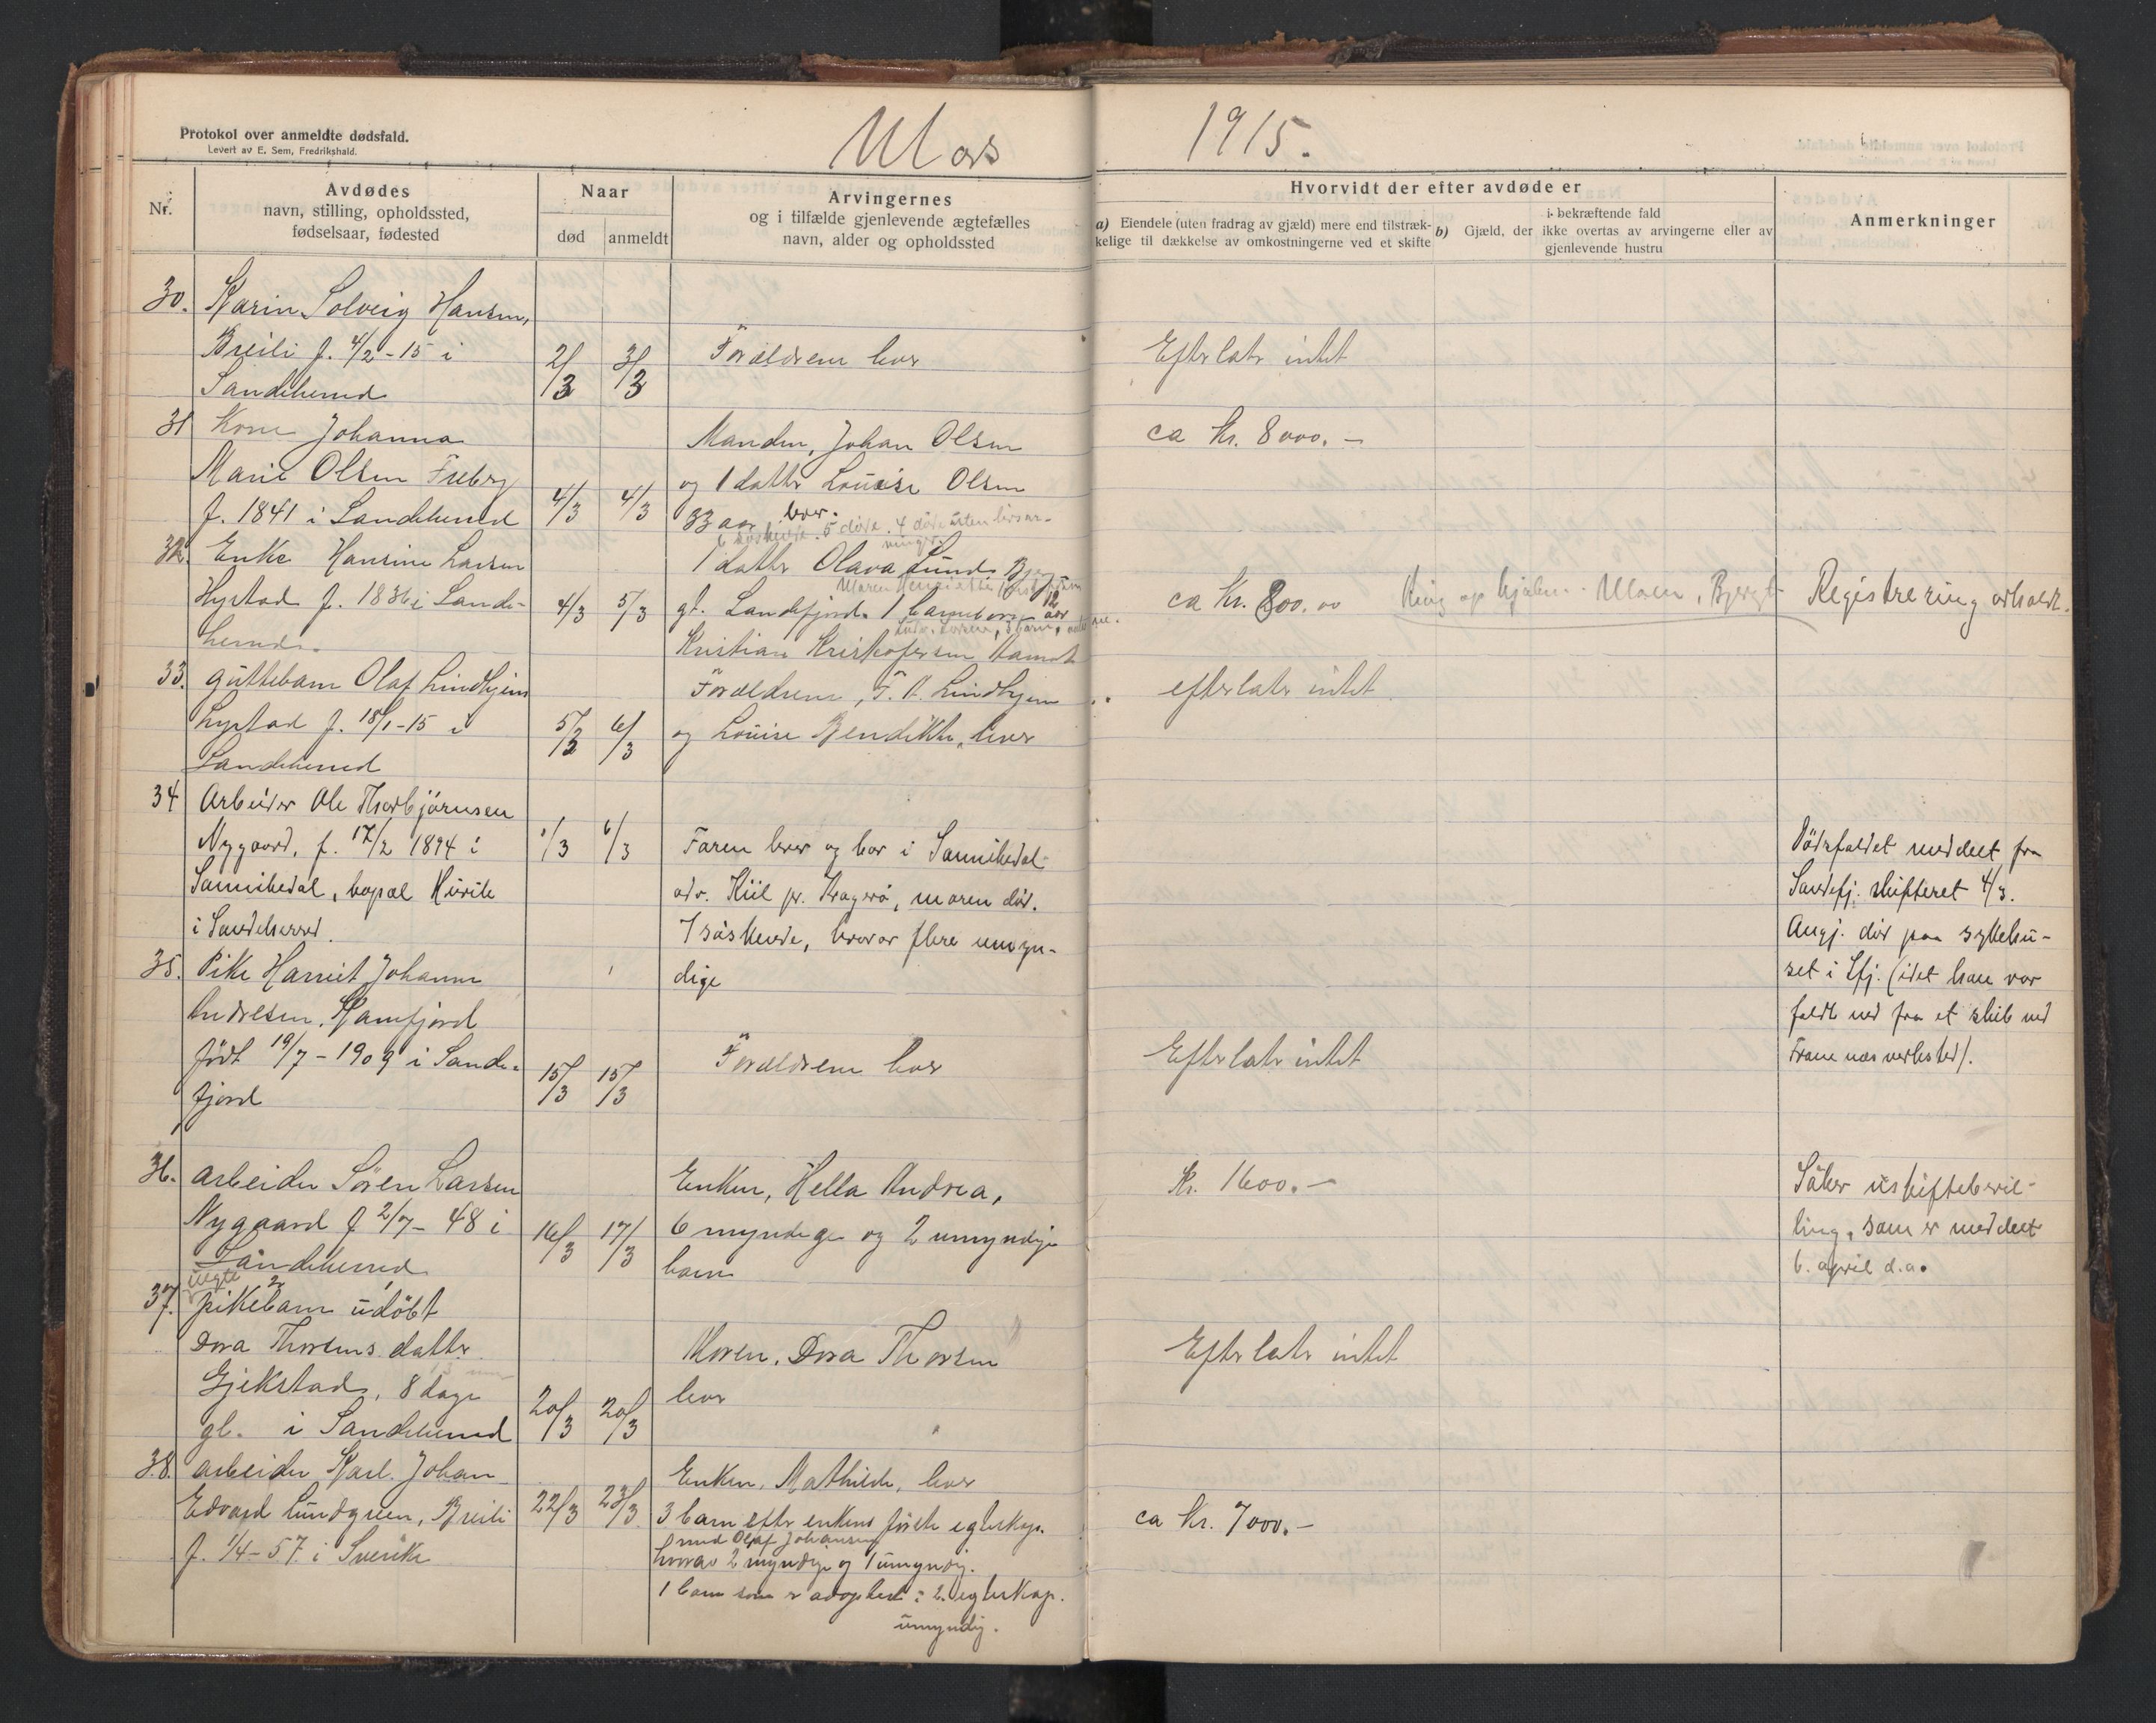 Protokol over anmeldte dødsfald.
Levert av E. Sem, Fredrikshald.
Mars
1915.
Nr.
Avdødes
navn, stilling, opholdssted,
fødselsaar, fødested
Naar
død
anmeldt
Arvingernes
og i tilfælde gjenlevende ægtefælles
navn, alder og opholdssted
Hvorvidt der efter avdøde er
a) Eiendele (uten fradrag av gjæld) mere end tilstræk-
kelige til dækkelse av omkostningerne ved et skifte
b) Gjæld, der i bekræftende fald
ikke overtas av arvingerne eller av
gjenlevende hustru
Anmerkninger
30. Karin Solveig Hansen,
Breili f. 4/2-15 i
Sandeherred
2/3
3/3
Forældrene lever
Efterlater intet
31 Kone Johanna
Marie Olsen Freberg
f. 1841 i Sandeherred
4/3
4/3
Manden, Johan Olsen
og 1 datter Louise Olsen
33 aar lever.
ca kr. 8000.-
6 søskende. 5 døde. 4 døde uten livsar-
vinger.
32. Enke Hansine Larsen
Hystad f. 1836 i Sande-
herred.
4/3
5/3
1 datter Olava Lund
Maren Henriette
gt. Sandefjord. 1 barnebarn 12 aar
Kristian Kristofersen Kamod
ca kr. 800.00
Registrering avholdt.
33. guttebarn Olaf Lindhjem
Hystad f. 18/1-15 i
Sandeherred
5/3
6/3
Forældrene, T. A. Lindhjem
og Louise Bendikte, lever
efterlater intet
34 Arbeider Ole Thorbjörnsen
Nygaard, f. 17/2 1894 i
Sannikedal, bopæl Huvik
i Sandeherred.
1/3
6/3
Faren lever og bor i Sannikedal
adr. Kiil pr. Kragerö, moren död.
7 söskende, hvorav flere umyn-
dige
Dödsfaldet meddelt fra
Sandefj. skifteret 4/3.
Angj. död paa sykehu-
set i Sfj. (idet han var
faldt ned fra et skib ved
Framnæs verksted).
35. Pike Harriet Johanne
Andresen, Kamfjord
født 19/7-1909 i Sande-
fjord
15/3
15/3
Forældrene lever
Efterlater intet
36. arbeider Søren Larsen
Nygaard f 2/7-48 i
Sandeherred
16/3
17/3
Enken, Hella Andrea,
6 myndige og 2 umyndige
barn
Kr. 1600.-
Söker uskiftebevil-
ling, som er meddelt
6. april d.a.
37. uegte
pikebarn udöbt
Dora Thorsens datter
Gjekstad, 8 dage
gl. i Sandeherred
20/3
20/3
Moren, Dora Thorsen
lever
Efterlater intet
38. arbeider Karl Johan
Edvard Lundgreen, Breili
f. 1/4-57 i Sverike
22/3
23/3
Enken, Mathilde, lever
3 barn efter enkens første egteskap.
med Olaf Johansen
hvorav 2 myndige og 1 umyndig.
1 barn som er adoptert i 2. egteskap.
umyndig.
ca kr. 7000.-